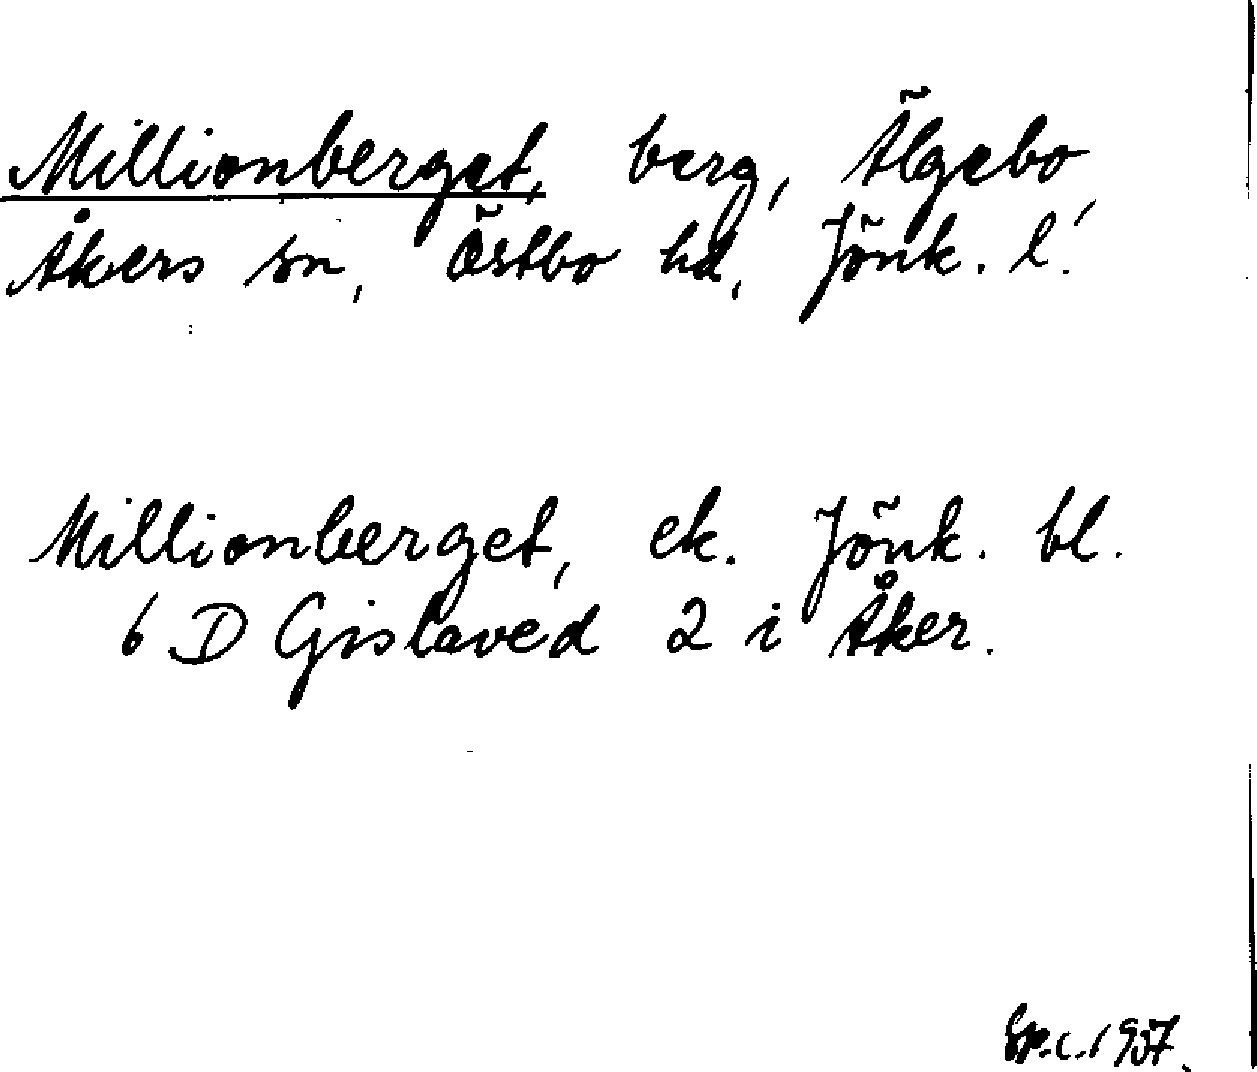 Millionberget, berg, Älgebo,
Åkers sn, Östbo hd, Jönk. l.
Millionberget, ek. Jönk. bl.
6 D Gislaved 2 i Åker.
1937.